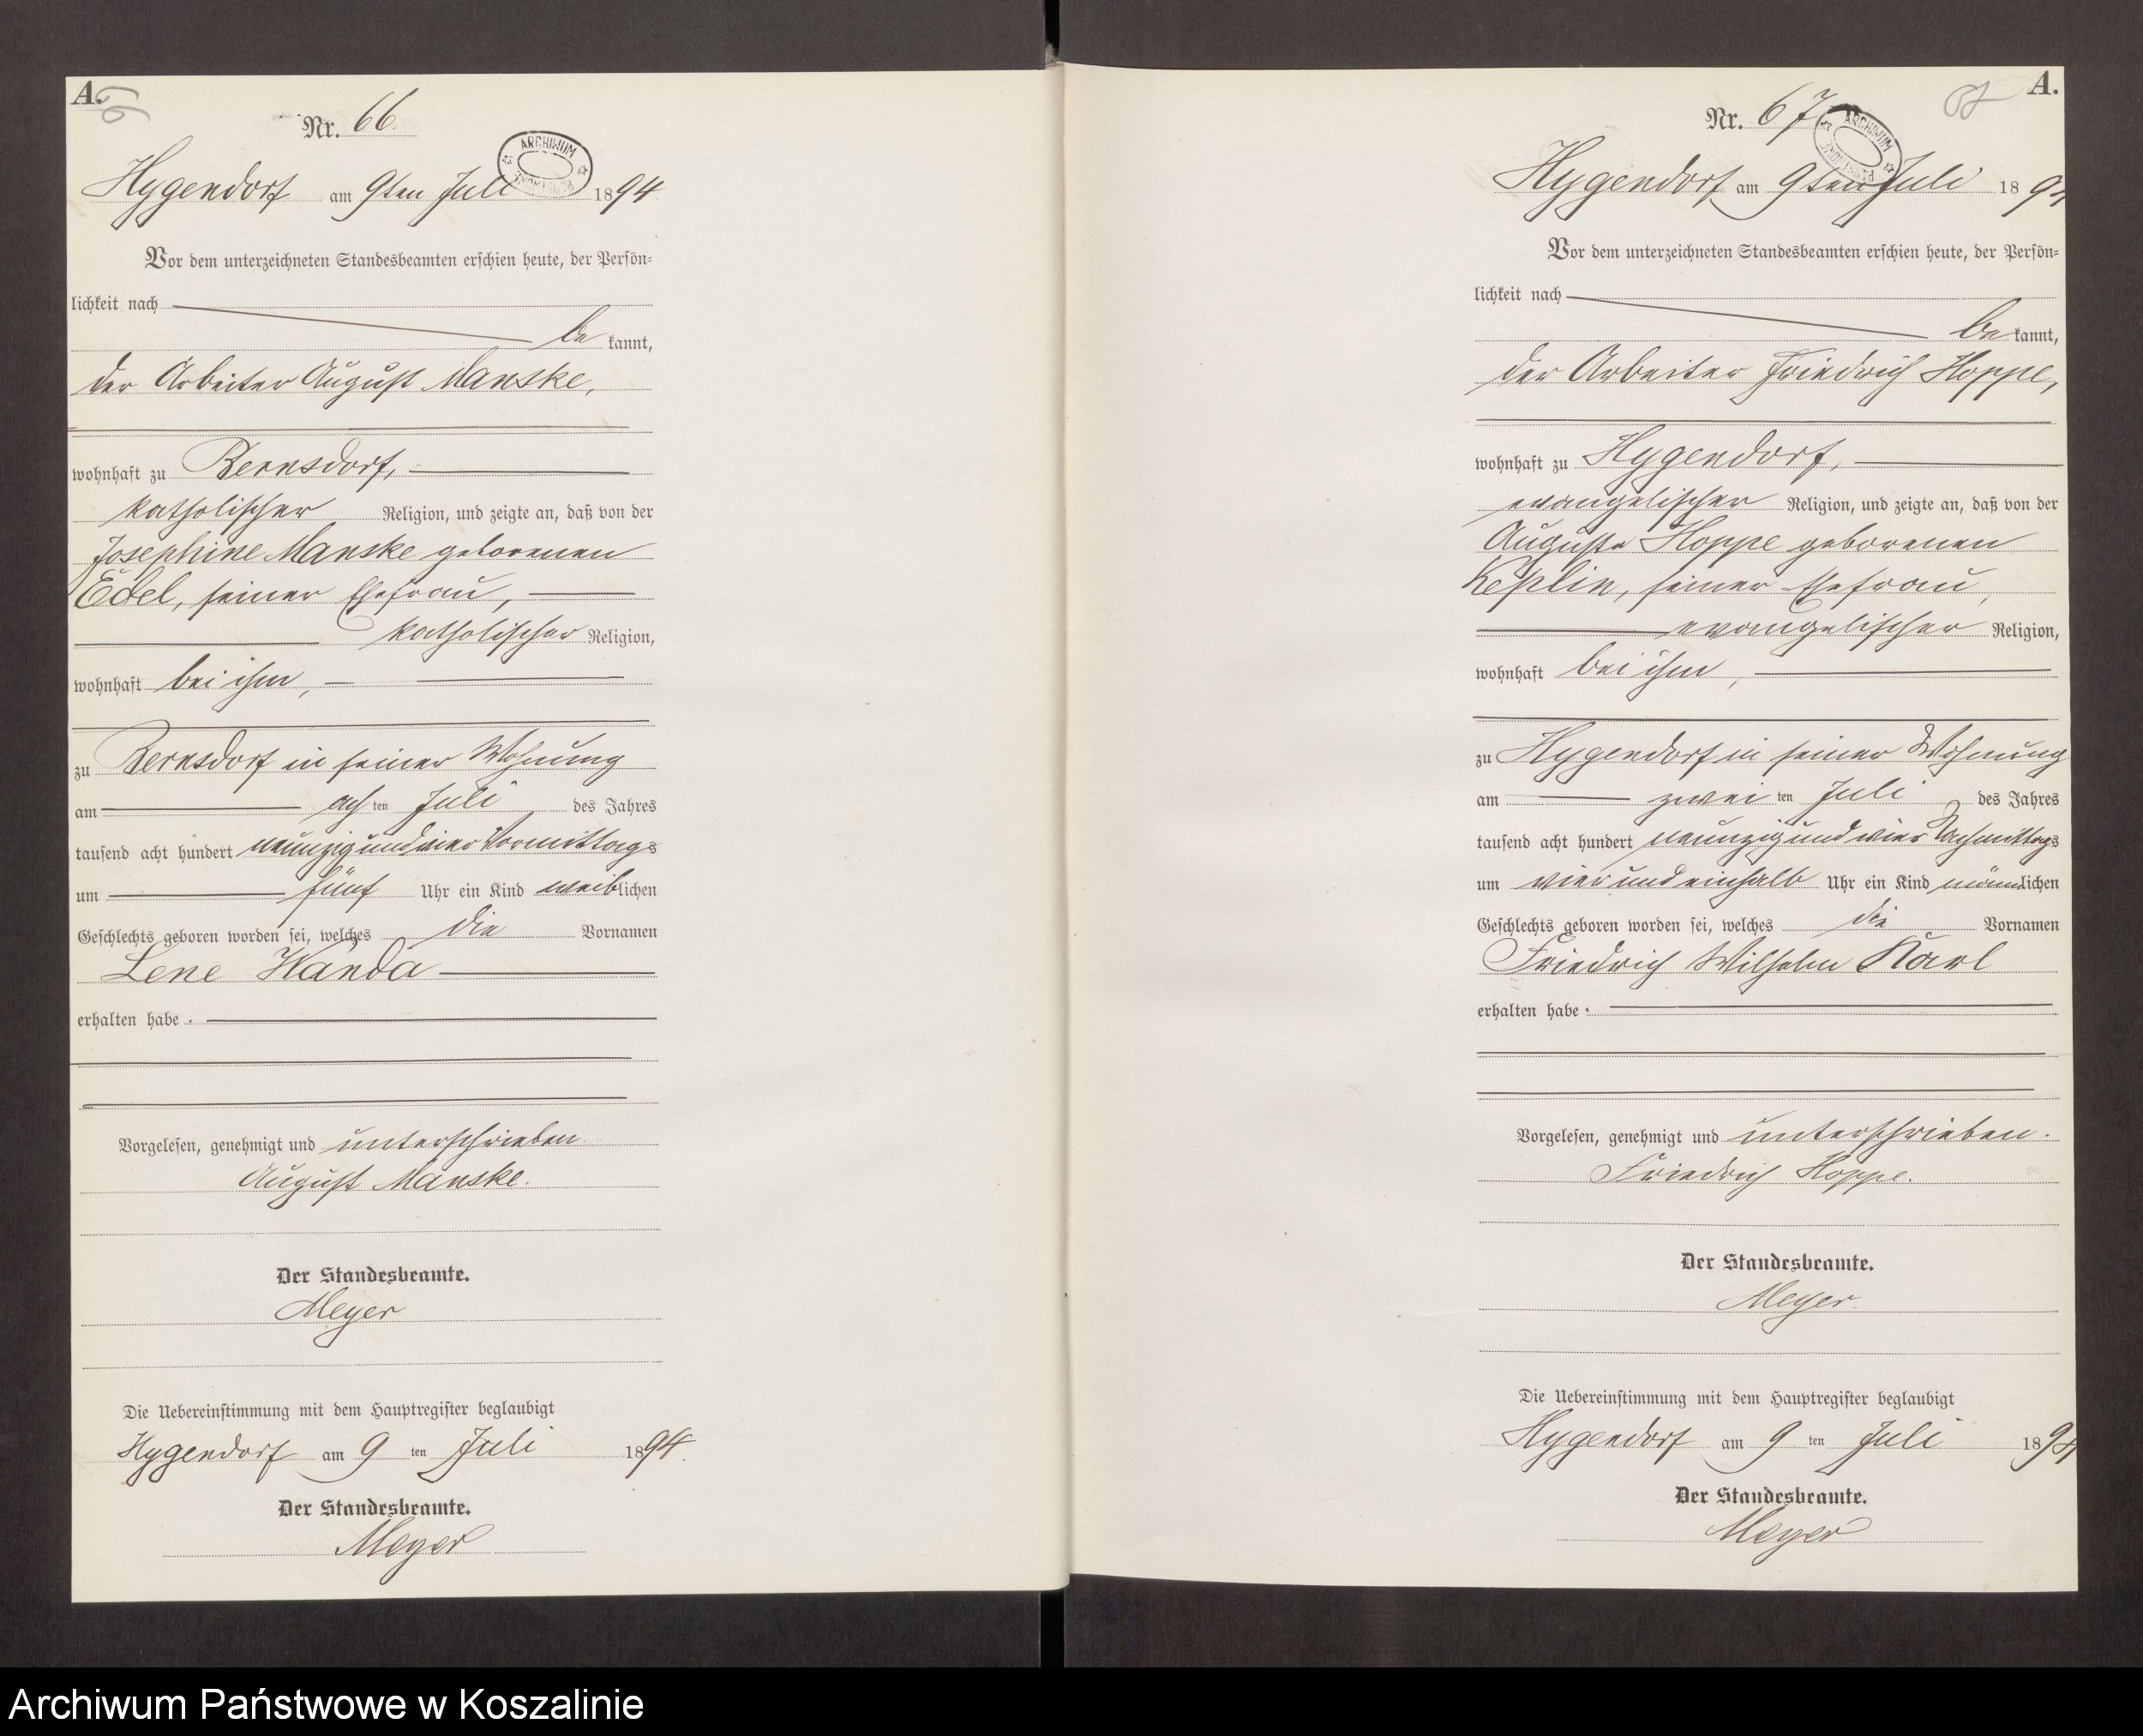 A.
Nr. 66.
ARCHIWUM
Hygendorf am 9ten Juli 1894
Vor dem unterzeichneten Standesbeamten erschien heute, der Persön-
lichkeit nach
be kannt,
der Arbeiter August Manske,
wohnhaft zu Bernsdorf,
katholischer Religion, und zeigte an, daß von der
Josephine Manske geborenen
Edel, seiner Ehefrau,
katholischer Religion,
wohnhaft bei ihm,
zu Bernsdorf in seiner Wohnung
am ach ten Juli des Jahres
tausend acht hundert neunzig und vier Vormittags
um fünf Uhr ein Kind weiblichen
Geschlechts geboren worden sei, welches die Vornamen
Lene Wanda
erhalten habe.
Vorgelesen, genehmigt und unterschrieben
August Manske.
Der Standesbeamte.
Meyer
Die Uebereinstimmung mit dem Hauptregister beglaubigt
Hygendorf am 9 ten Juli 1894.
Der Standesbeamte.
Meyer
A.
Nr. 67
ARCHIWUM
Hygendorf am 9ten Juli 1894
Vor dem unterzeichneten Standesbeamten erschien heute, der Persön-
lichkeit nach
be kannt,
der Arbeiter Friedrich Hoppe,
wohnhaft zu Hygendorf,
evangelischer Religion, und zeigte an, daß von der
Auguste Hoppe geborenen
Keplin, seiner Ehefrau,
evangelischer Religion,
wohnhaft bei ihm,
zu Hygendorf in seiner Wohnung
am zwei ten Juli des Jahres
tausend acht hundert neunzig und vier Nachmittags
um vier und einhalb Uhr ein Kind männlichen
Geschlechts geboren worden sei, welches die Vornamen
Friedrich Wilhelm Karl
erhalten habe.
Vorgelesen, genehmigt und unterschrieben.
Friedrich Hoppe.
Der Standesbeamte.
Meyer.
Die Uebereinstimmung mit dem Hauptregister beglaubigt
Hygendorf am 9 ten Juli 1894
Der Standesbeamte.
Meyer
Archiwum Państwowe w Koszalinie